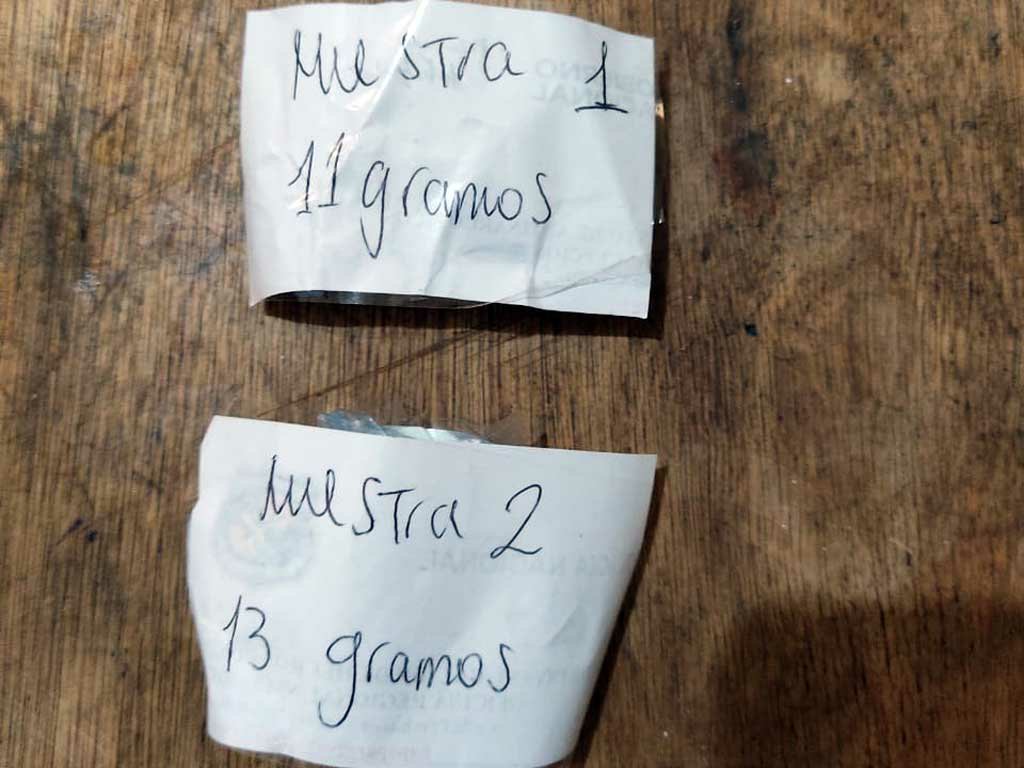 Muestra 1
11 gramos
Muestra 2
13 gramos